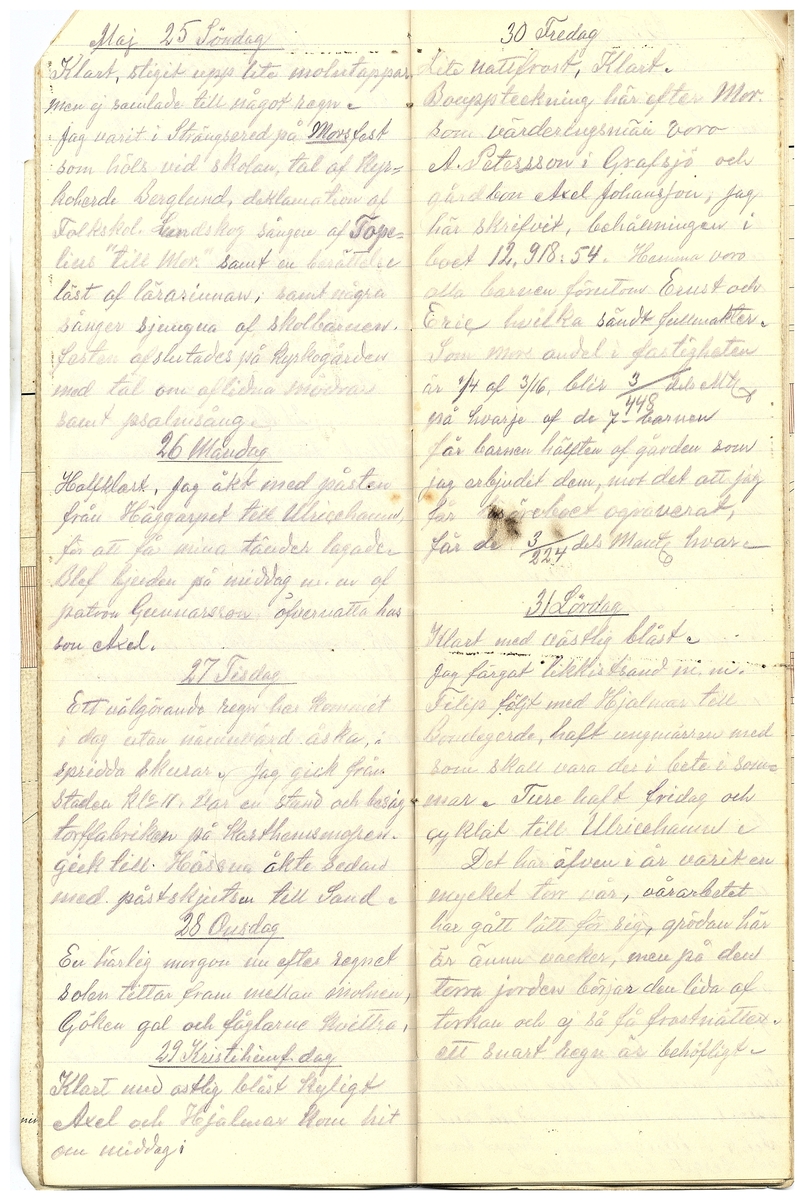 Maj 25 Söndag
Klart, stigit upp lite molntappar
men ej samlade till något regn.
Jag varit i Strängsered på Morsfest
som höls vid skolan, tal af Kyr=
koherde Berglund, deklamation af
Folkskol. Lundskog sången af Tope=
lius "till Mor." samt en berättelse
läst af lärarinnan; samt några
sånger sjungna af skolbarnen.
festen afslutades på kyrkogården
med tal om aflidna mödrar
samt psalmsång.
26 Måndag
Halfklart, jag åkt med påsten
från Häggarpet till Ulricehamn,
för att få mina tänder lagade.
Blef bjuden på middag m.m af
patron Gunnarsson öfvernatta hos
son Axel.
27 Tisdag
Ett välgörande regn har kommit
i dag utan nämnvärd åska, i
spridda skurar. Jag gick från
staden kl: 11. Var en stund och besåg
torffabriken på Karthemsmossen.
gick till Hössna åkte sedan
med påstskjutsen till Sand.
28 Onsdag
En härlig morgon nu efter regnet
solen tittar fram mellan molnen,
Göken gal och fåglarne kvittra,
29 Kristihimf.dag
Klart med ostlig blåst kyligt
Axel och Hjalmar kom hit
om middag;
30 Fredag
Lite nattfrost, Klart.
Bouppteckning här efter Mor.
som värderingsmän voro
A. Petersson i Grafsjö och
gårdbon Axel Johansson, jag
här skrifvit, behålningen i
boet 12,918:54. Hemma voro
alla barnen förutom Ernst och
Eric hvilka sändt fullmakter.
Som mors andel i fastigheten
är 1/4 af 3/16, blir 3/448 dels Mtl
på hvarje af de 7 barnen
får barnen hälften af gården som
jag erbjudit dem, mot det att jag
får lösöreboet ograverat,
får de 3/224 dels Mant. hvar.
31 Lördag
Klart med västlig blåst.
Jag färgat likkistsand m.m.
Filip följt med Hjalmar till
Bondegärde, haft ungmärren med
som skall vara der i bete i som=
mar. Ture haft fridag och
cyklat till Ulricehamn.
Det har äfven i år varit en
mycket torr vår, vårarbetet
har gått lätt för sig, grödan här
är ännu vacker, men på den
torra jorden börjar den lida af
torkan och ej så få frostnätter.
ett snart regn är behöfligt.